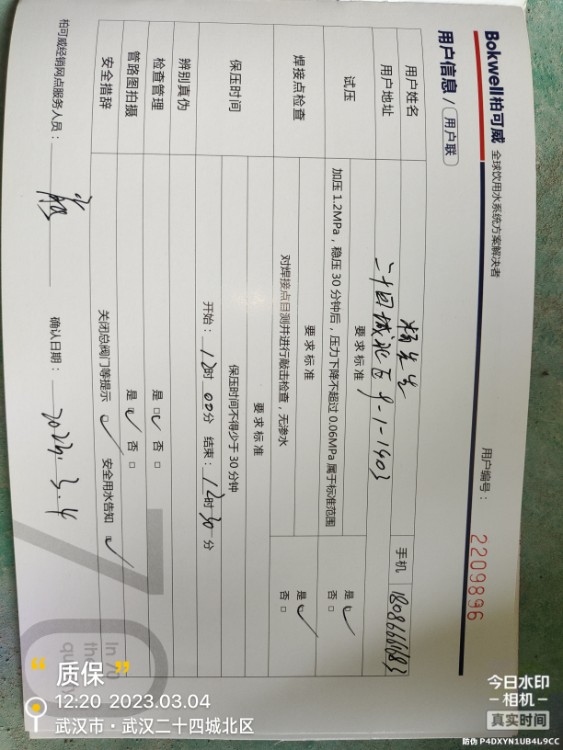 Bokwell柏可威 全球饮用水系统方案解决者
用户信息 / 用户联
用户编号： 2209896
用户姓名 杨先生 手机
用户地址 二十四城北区9-1-1403
试压 要求标准
加压 1.2MPa，稳压 30 分钟后，压力下降不超过 0.06MPa 属于标准范围 是 ✓ 否 □
焊接点检查 要求标准
对焊接点目测并进行敲击检查，无渗水 是 ✓ 否 □
保压时间 要求标准
保压时间不得少于 30 分钟
开始：12时 00分 结束：12时 30分
辨别真伪 是 ✓ 否 □
检查管理 是 ✓ 否 □
管路图拍摄
安全措辞 关闭总阀门等提示 ✓ 安全用水告知 ✓
柏可威经销网点服务人员： 确认日期： 2023.3.4
In 70
th
qu
“质保”
12:20 2023.03.04
武汉市·武汉二十四城北区
今日水印
相机
真实时间
防伪 P4DXYN1UB4L9CC